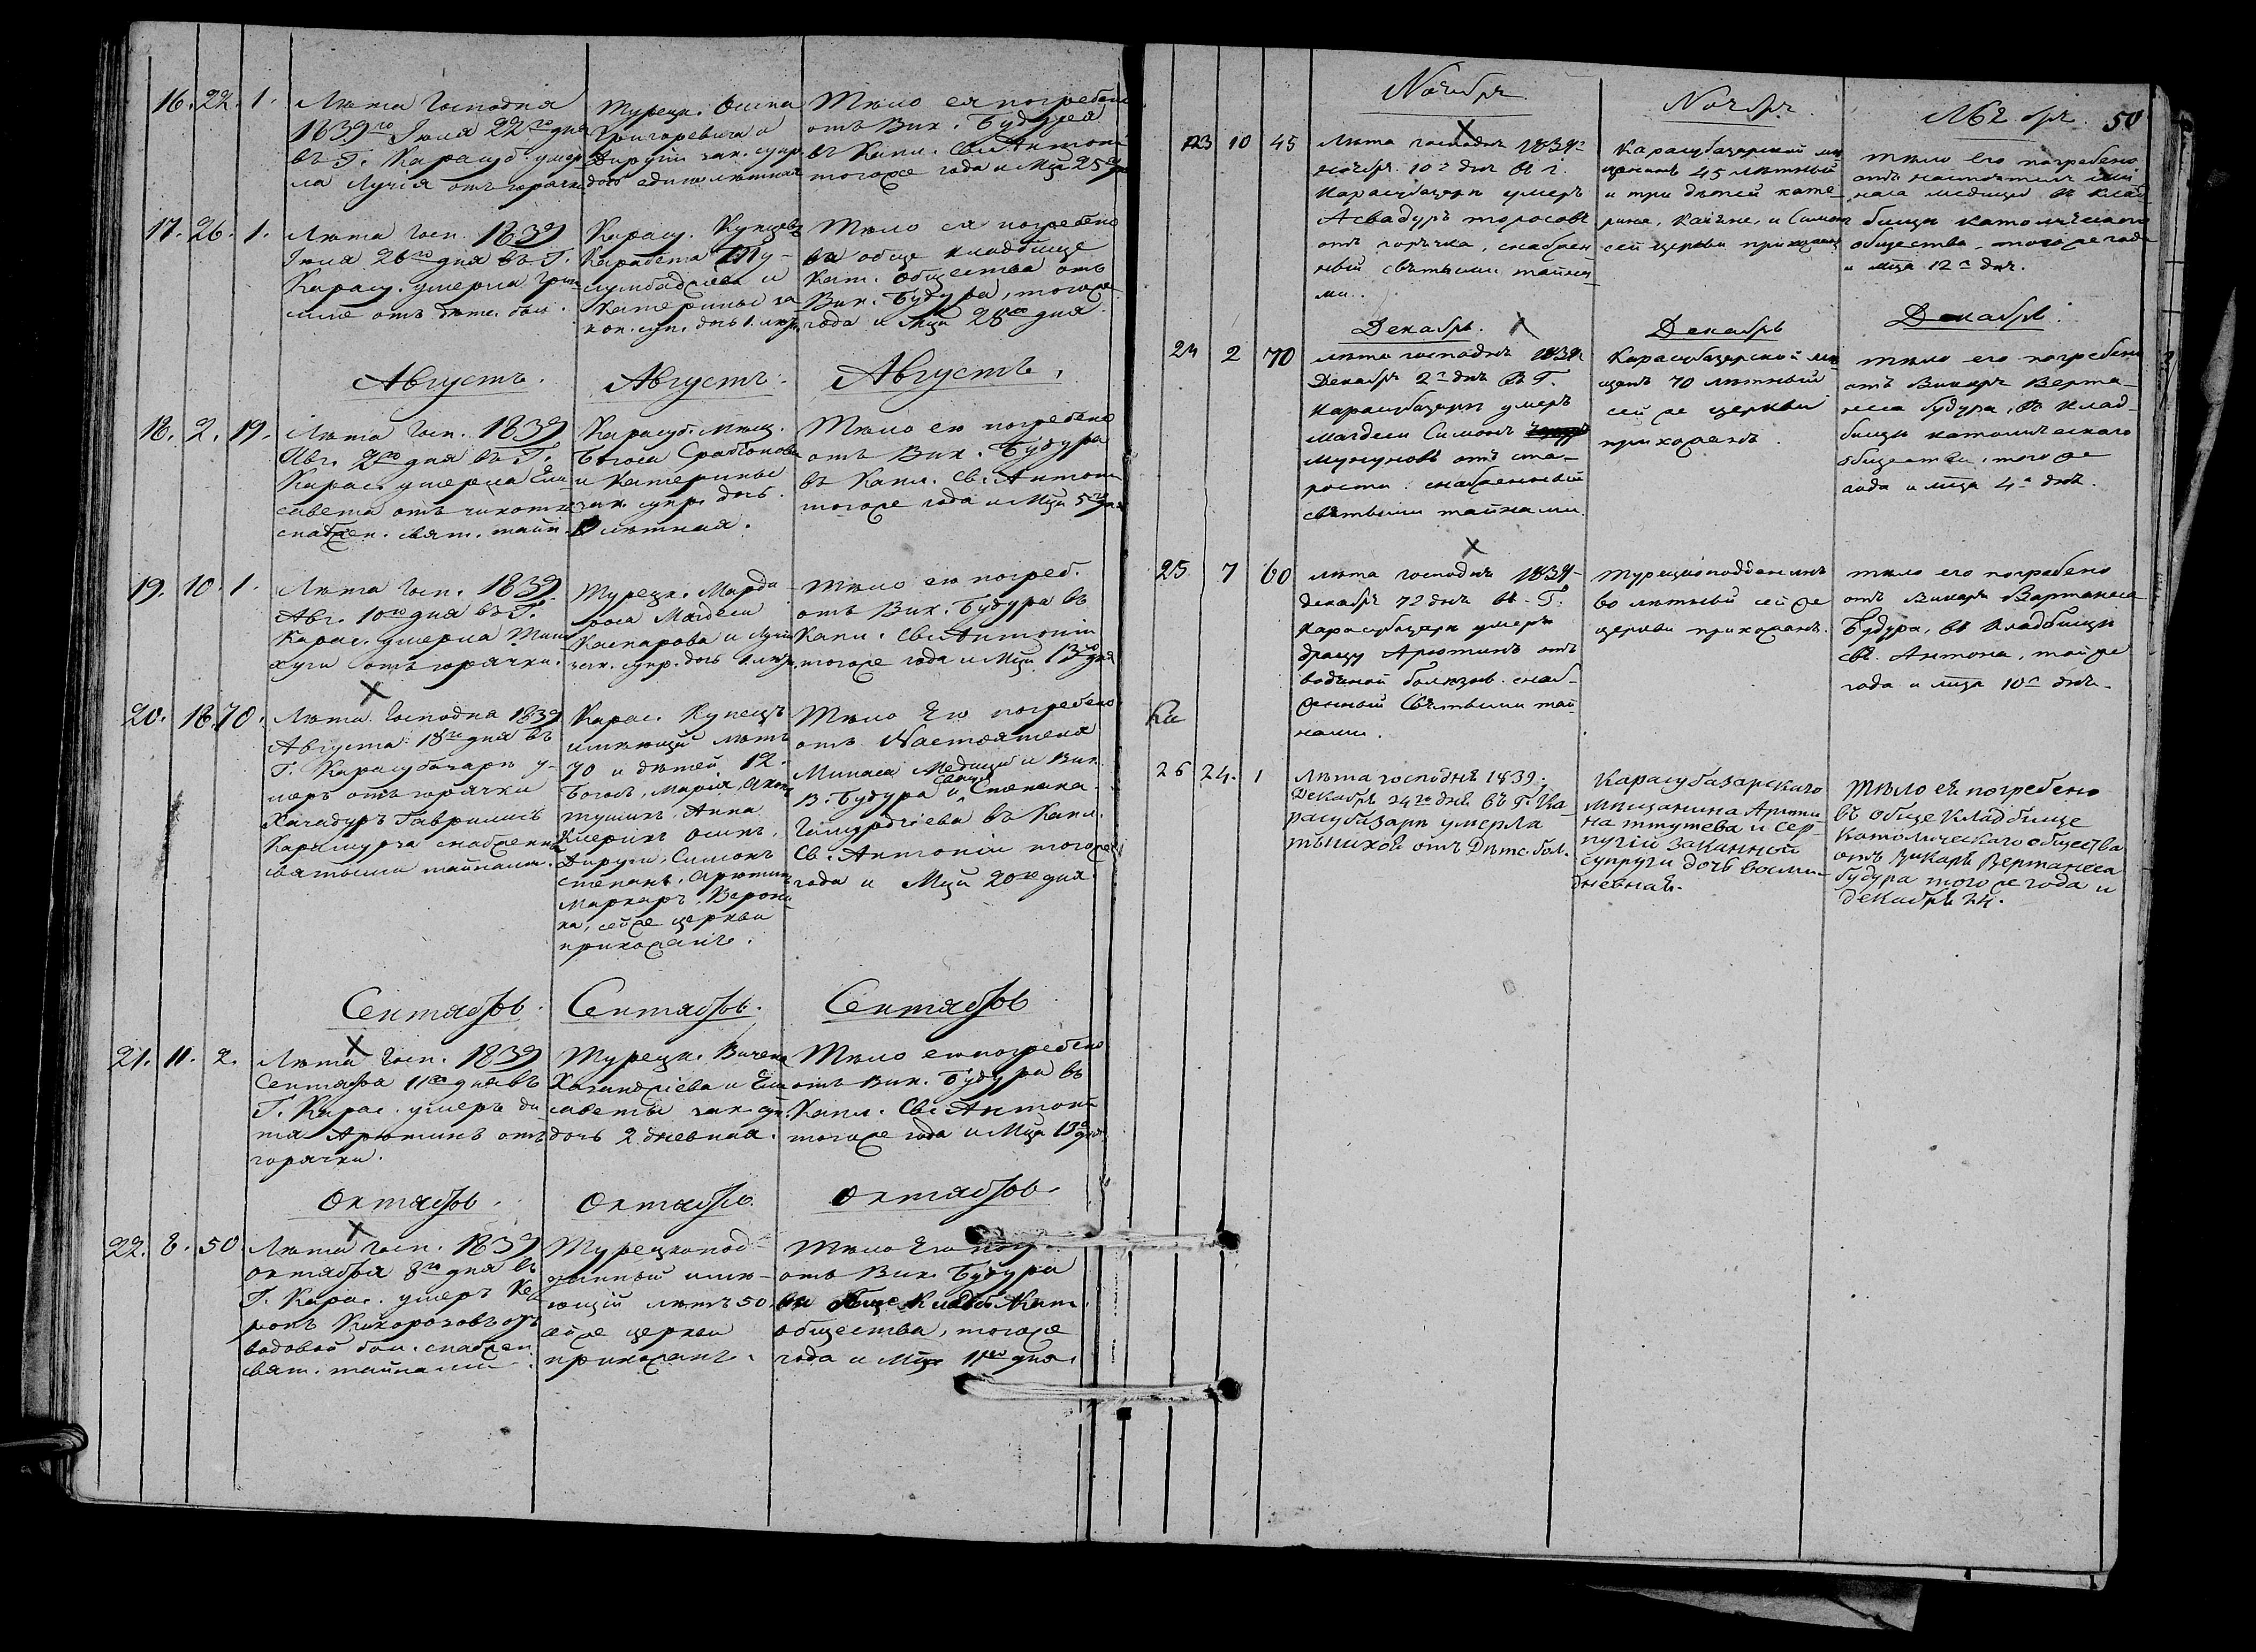 16. 22. 1.
Лѣта Господня
1839го Іюля 22го дня
въ Г. Карасуб. умер
ла Лучія отъ горячк
Турецк. Осипа
Григоревича и
Дируги зак. супр.
дочь единолѣтная
Тѣло ея погребено
отъ Вик. Будура
въ Капл. Св. Антоні
тогоже года и Мца 25го дня
17. 26. 1.
Лѣта Госп. 1839
Іюля 26го дня въ Г.
Карасу. умерла
отъ дѣтс. бол.
Карасу. Купцевъ
Карабета
и
Катерины за
кон. суп. дочь 1. лѣт.
Тѣло ея погребено
въ обще кладбище
Кат. общества отъ
Вик. Будура, тогоже
года и Мца 28го дня
Августъ.
Августъ.
Августъ.
18. 2. 19.
Лѣта Госп. 1839
Авг. 2го дня въ Г.
Карас. умерла Ели
савета отъ чихотки
снабжен. свят. тайн.
Карасуб. Мѣщ.
Богоса
и Катерины
зак. супр. дочь.
лѣтная.
Тѣло ею погребено
отъ Вик. Будура
въ Капл. Св. Антоні
тогоже года и Мца 5го дня
19. 10. 1.
Лѣта Госп. 1839.
Авг. 10го дня въ Г.
Карас. умерла
отъ горячки.
Турецк. Марди
роса Магдеси
Каспарова и Лучіи
зак. супр. дочь 1. лѣт.
Тѣло ею погреб.
отъ Вик. Будура въ
Капл. Св. Антоніи
тогоже года и Мца 13го дня
20. 18. 70.
Лѣта Господня 1839
Августа 18го дня въ
Г. Карасубазарѣ у-
меръ отъ горячки
Хачадуръ Гавриличъ
Карамурча снабженны
святыми тайнами.
Карас. Купецъ
имѣющій лѣтъ
70 и дѣтей 12.
Богосъ, Марія,
Анна
Осипъ,
Дируги, Симонъ
Степанъ, Арютинъ
Маркаръ, Верони
ка, сейже церкви
прихожанъ.
Тѣло Его погребено
отъ Настоятеля
Минаса Медици и Вик.
В. Будура и Степана
въ Капл.
Св. Антоніи тогоже
года и Мца 20го дня.
Сентябрь.
Сентябрь.
Сентябрь
21. 11. 2.
Лѣта Госп. 1839
Сентября 11го дня въ
Г. Карас. умеръ ди
тя Арютинъ отъ
горячки.
Турецк. Вичена
и Ели
саветы зак. суп.
дочь 2. дневная.
Тѣло ею погребено
отъ Вик. Будура въ
Капл. Св. Антоні
тогоже года и Мца 13го дня
Октябрь.
Октябрь.
Октябрь.
22. 8. 50.
Лѣта Госп. 1839
октября 8го дня въ
Г. Карас. умеръ Ке
рокъ отъ
водовой бол. снабжен
свят. тайнами
Турецкопод-
данный имѣ-
ющій лѣтъ 50.
сейже церкви
прихожанъ.
Тѣло Его пог
отъ Вик. Будура
въ обще кладб. Кат.
общества, тогоже
года и Мца 11го дня.
50
Ноябрь
Ноябрь.
Ноябрь.
23 10 45
Лѣта господнѣ 1839го
ноябрѣ. 10го днѣ въ г.
Карасубазарѣ умеръ
Асвадуръ торосовъ
отъ горѣчка, снабжен
ный свѣтыми тайна
ми.
Карасубазарской мѣ
щанинъ 45 лѣтный
и три дѣтей кате-
рина, и Симонъ
сей церкви прихожанъ
тѣло его погребено
отъ настоятеля ми
наса медици въ клад
бище католическаго
общества, того же года
и мца 12го днѣ.
Декабрь.
Декабрь
Декабрь.
24 2 70
лѣта господнѣ 1839го
Декабрѣ 2го днѣ въ Г.
Карасубазарѣ умеръ
магдеси Симонъ
отъ ста-
рости. снабженный
свѣтыми тайнами.
Карасубазарской мѣ
щанъ 70 лѣтный
сей же церкви
прихожанъ.
тѣло его погребено
отъ Викарѣ Верта-
неса будура, въ клад-
бище католическаго
общества, того же
года и мца 4го днѣ.
25 7 60
лѣта господнѣ 1839-
декабрѣ 72 днѣ въ - Г.
Карасубазарѣ умеръ
Арютинъ отъ
водяной болѣзнь. снаб-
женный Свѣтыми тай
нами.
турецкоподданныхъ
60 лѣтный сей же
церкви прихожанъ.
тѣло его погребено
отъ Викарѣ Вартанеса
Будура, въ кладбище
св. Антона, той же
года и мца 10го днѣ.
26 24. 1
лѣта господнѣ 1839.
Декабрѣ 24го днѣ въ Г. Ка
расубазарѣ умерла
отъ Дѣтс. бол.
Карасубазарскаго
мѣщанина Арюти-
на и Сер-
пугіи законной
супруги дочь восми-
дневнаѣ.
Тѣло еѣ погребено
въ обще Кладбище
Католическаго общества
отъ Викарѣ Вертанеса
будура того же года и
декабрѣ 24.